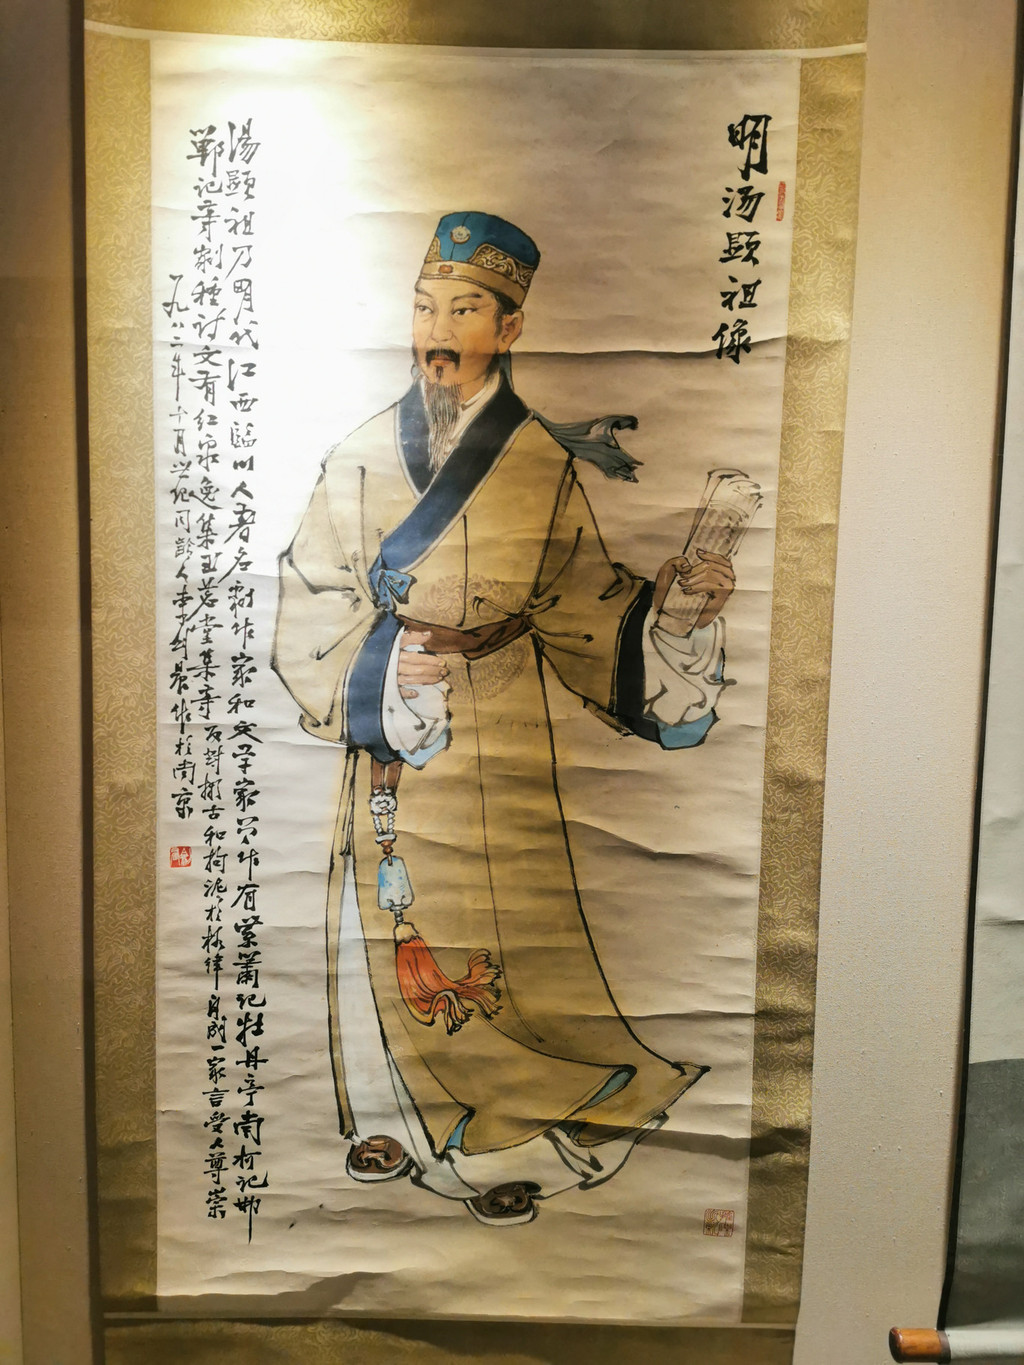 明汤显祖像
湯顕祖乃明代江西臨川人著名劇作家和文学家名作有紫蕭记牡丹亭南柯记邯
鄲记等劇種讨文有红泉逸集玉茗堂集等反對擬古和拘泥於格律自成一家言受人尊崇
一九八二年十月世纪同龄人李 晨作於南京